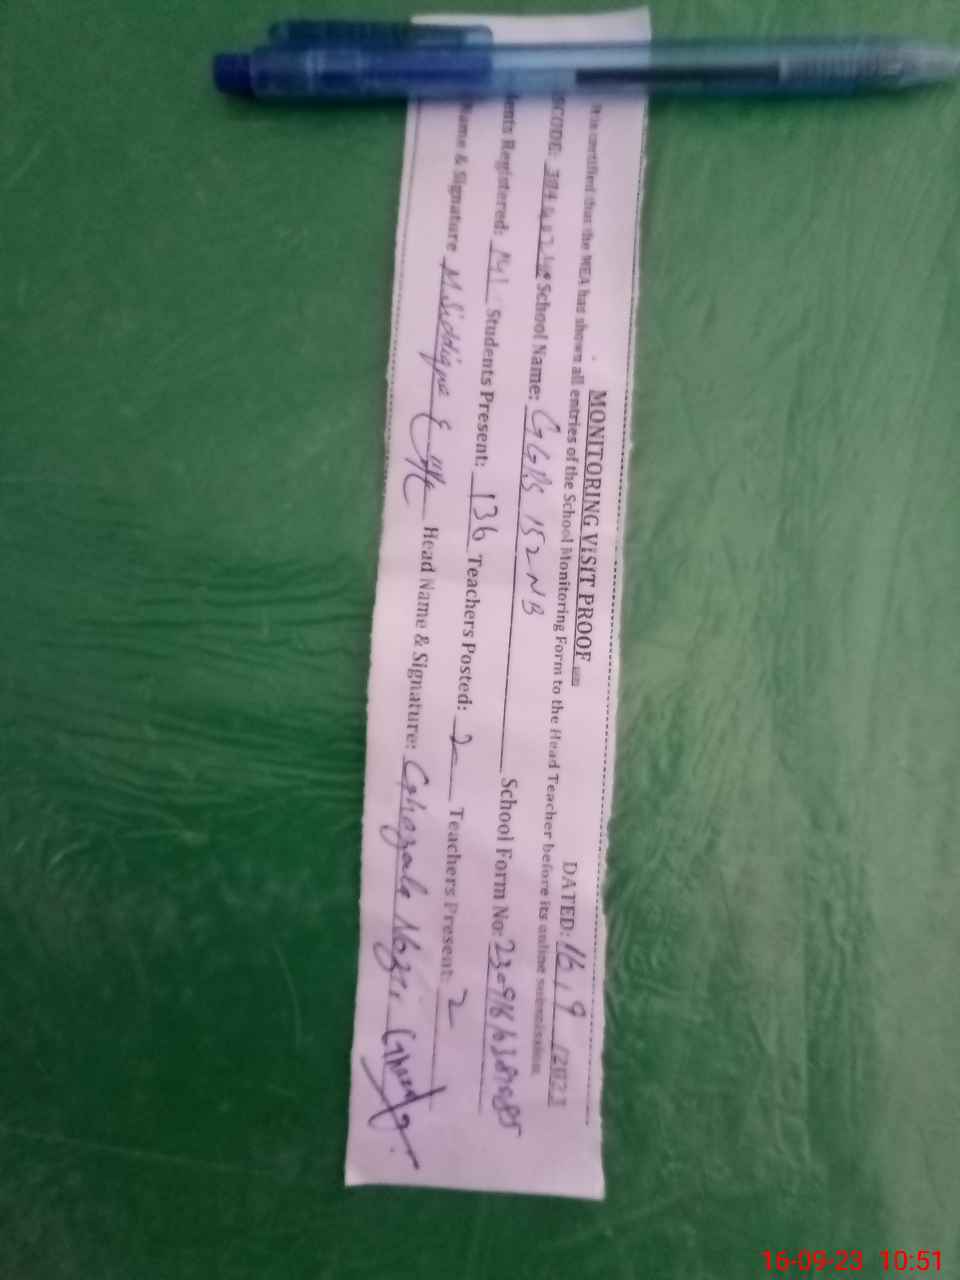 MONITORING VISIT PROOF DATED: 16/9/2023
It is certified that the MEA has shown all entries of the School Monitoring Form to the Head Teacher before its online submission.
SCODE: School Name: GGPS 152 NB School Form No:
dents Registered: 141 Students Present: 136 Teachers Posted: 2 Teachers Present: 2
Name & Signature M. Siddique Head Name & Signature: Ghazala Nazir
16-09-23 10:51